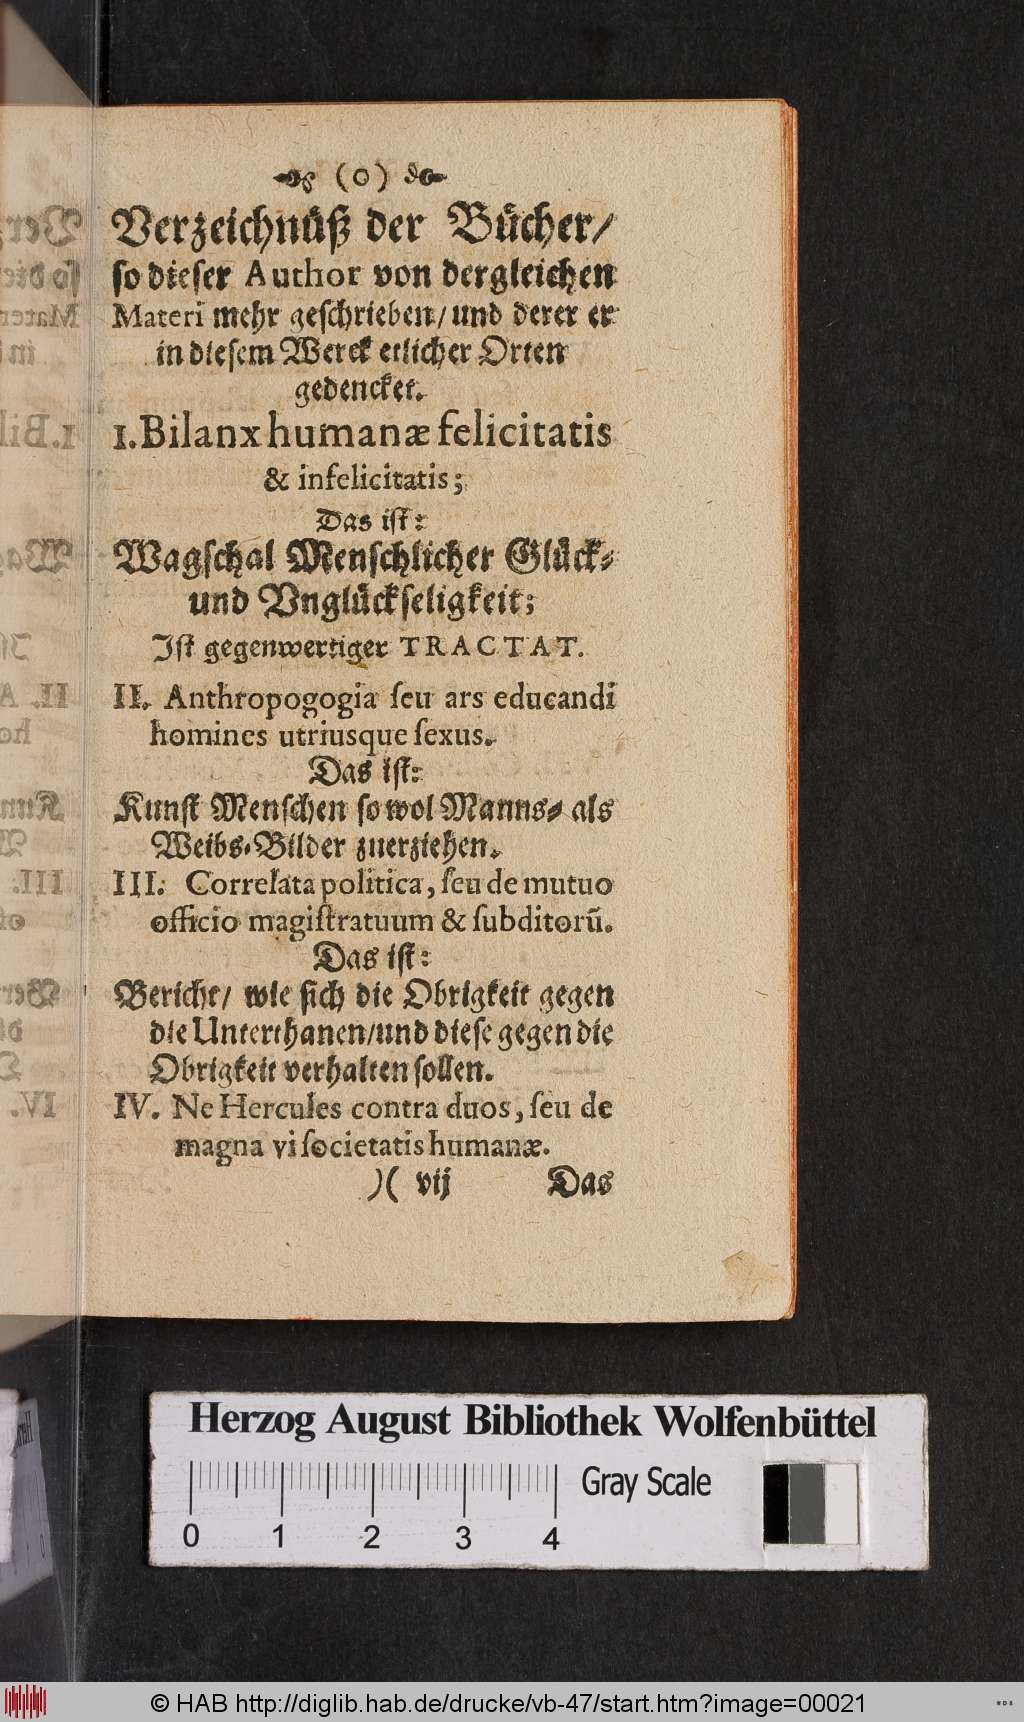 (o)
Verzeichnüß der Bücher/
so dieser Author von dergleichen
Materi mehr geschrieben/ und derer er
in diesem Werck etlicher Orten
gedencket.
1. Bilanx humanæ felicitatis
& infelicitatis;
Das ist:
Wagschal Menschlicher Glück-
und Vnglückseligkeit;
Ist gegenwertiger TRACTAT.
II. Anthropogogia seu ars educandi
homines utriusque sexus.
Das ist:
Kunst Menschen so wol Manns- als
Weibs-Bilder zuerziehen.
III. Correlata politica, seu de mutuo
officio magistratuum & subditorũ.
Das ist:
Bericht/ wie sich die Obrigkeit gegen
die Unterthanen/ und diese gegen die
Obrigkeit verhalten sollen.
IV. Ne Hercules contra duos, seu de
magna vi societatis humanæ.
)( vij Das
Herzog August Bibliothek Wolfenbüttel
Gray Scale
0 1 2 3 4
© HAB http://diglib.hab.de/drucke/vb-47/start.htm?image=00021